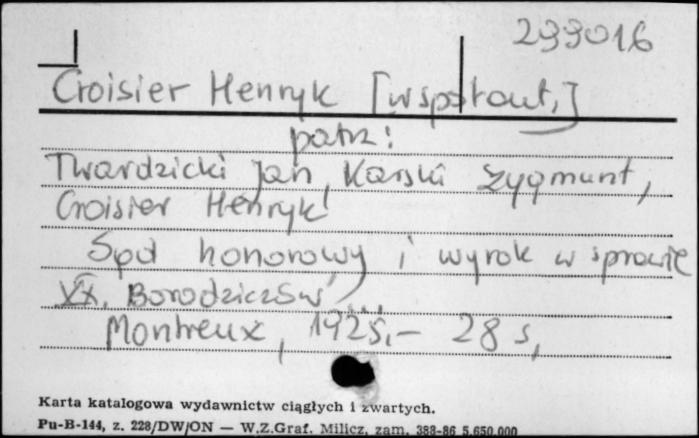 233016
Croisier Henryk [współaut.]
patrz:
Twardzicki Jan, Karski Zygmunt,
Croisier Henryk
Sąd honorowy i wyrok w sprawie
XX. Borodziczów
Montreux, 1925.- 28 s,
Karta katalogowa wydawnictw ciągłych i zwartych.
Pu-B-144, z. 228/DW/ON — W.Z.Graf. Milicz, zam. 388-86 5.650.000